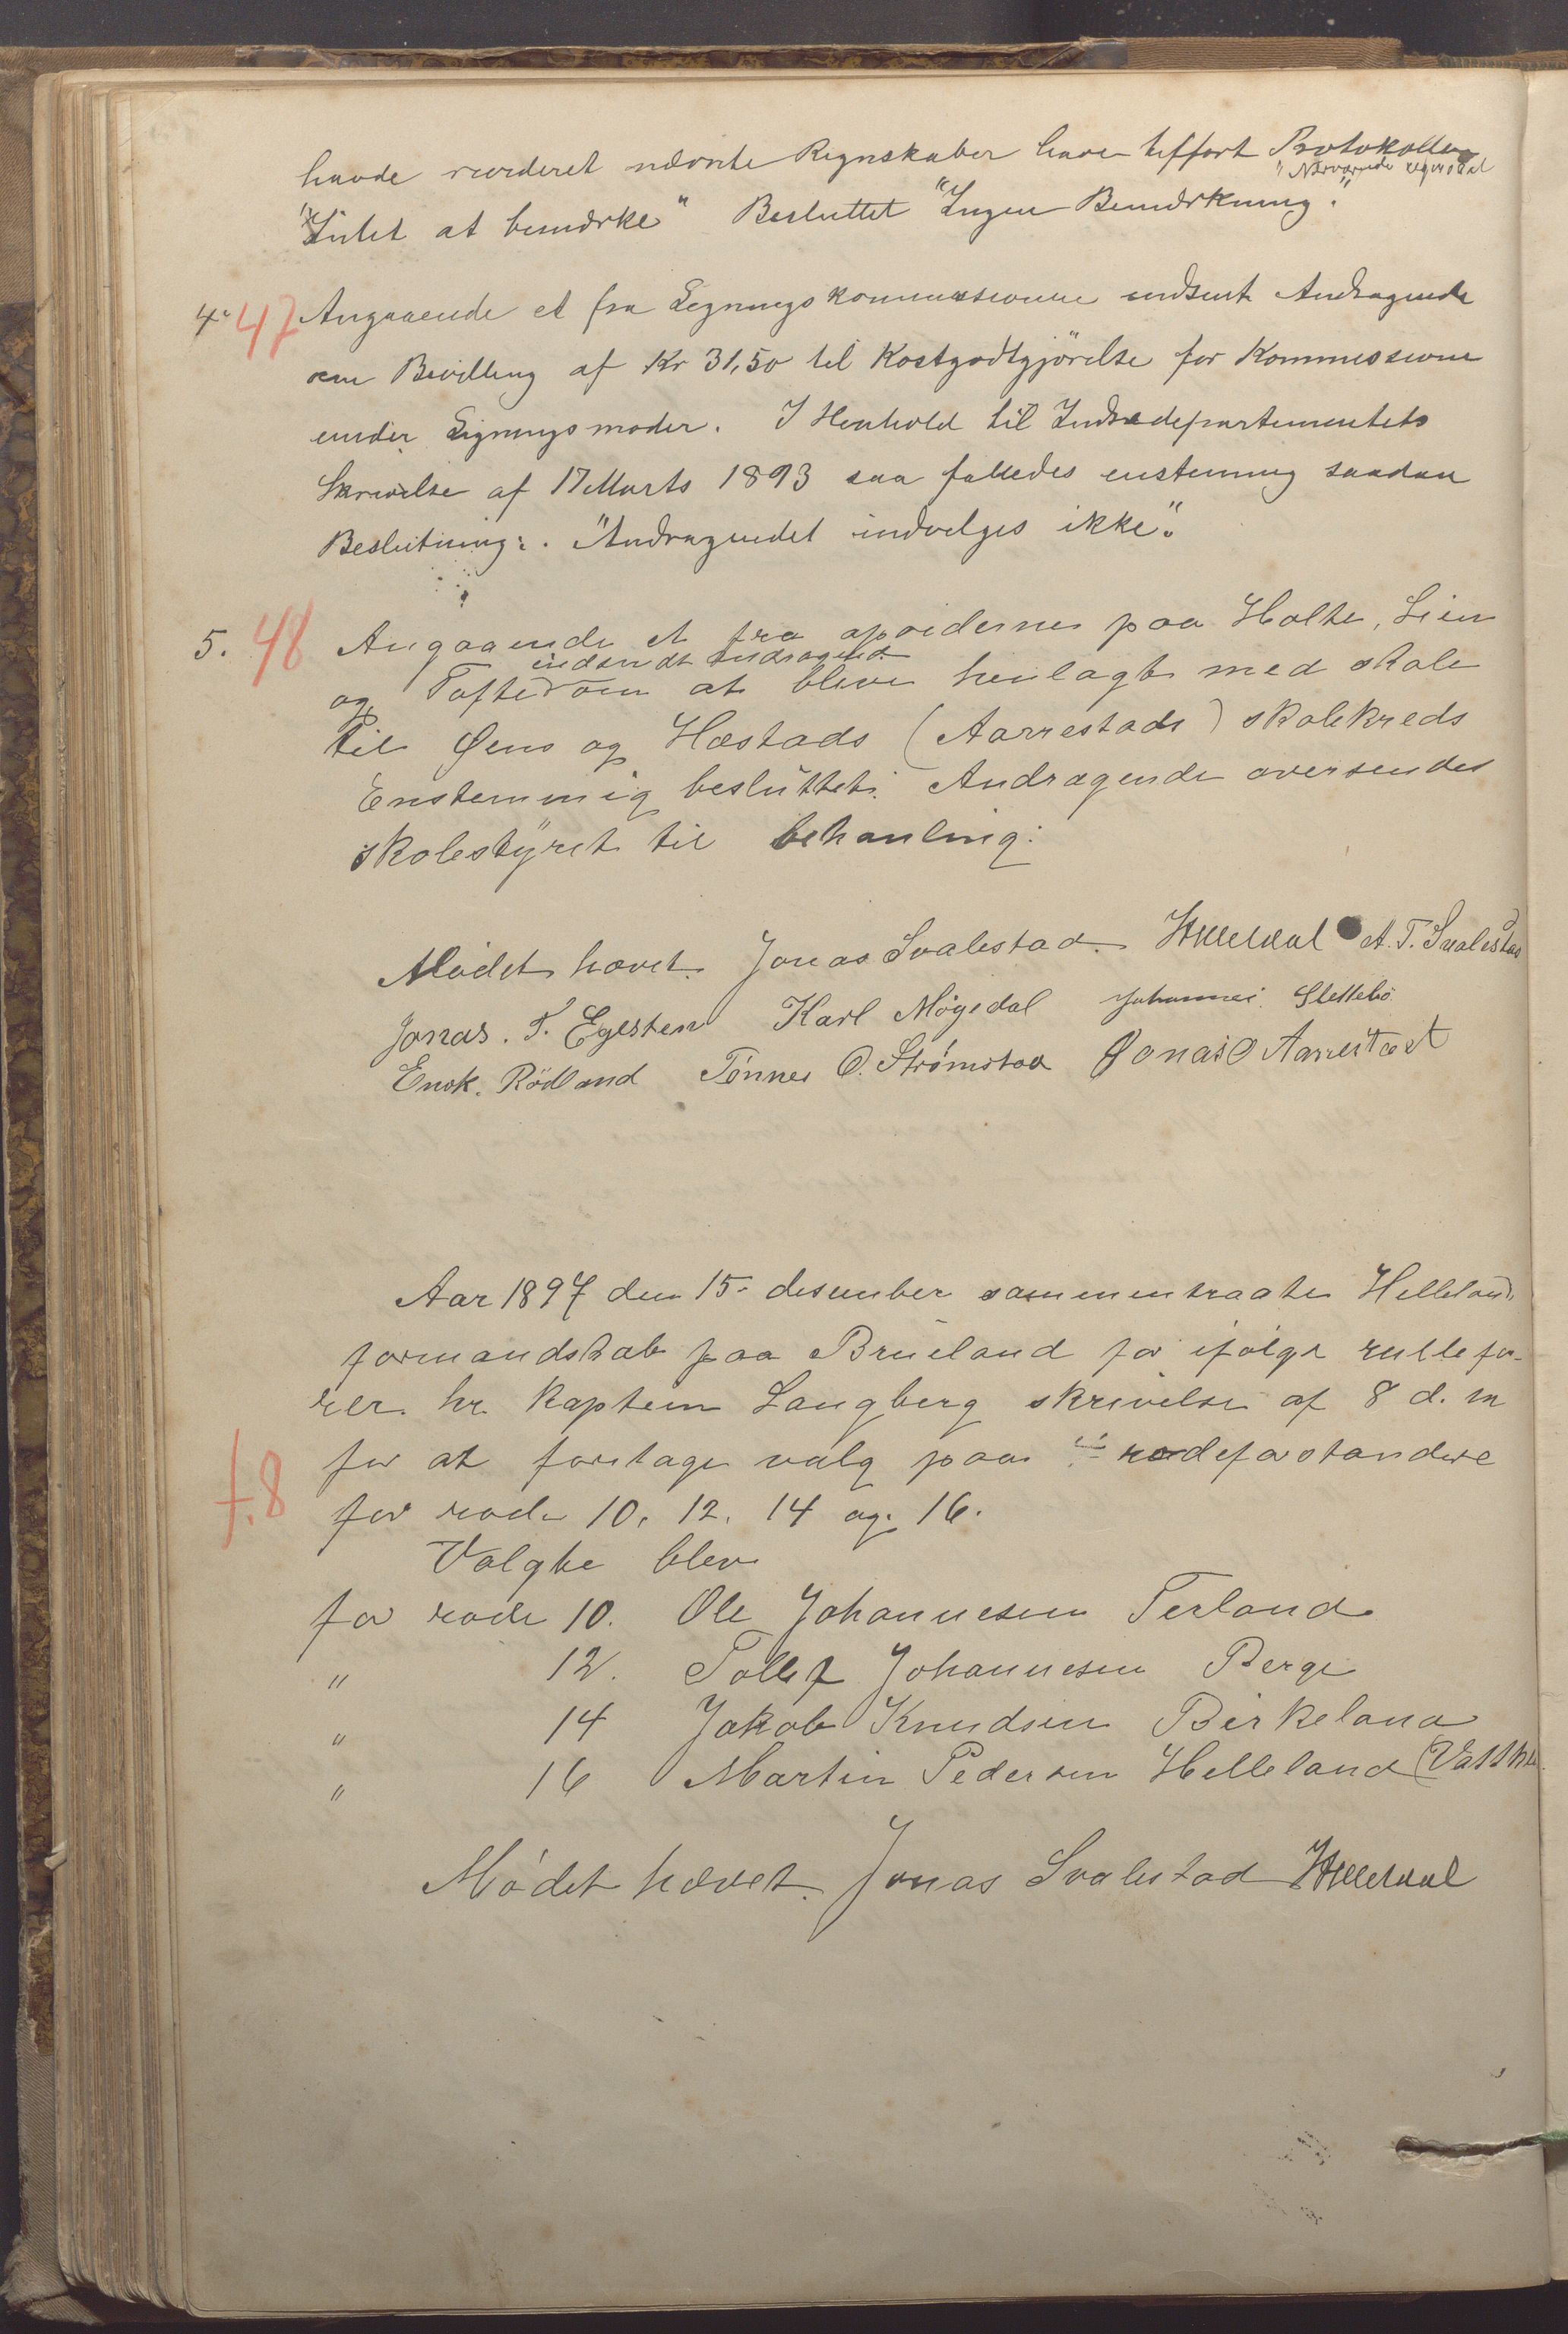 havde revideret nævnte Regnskaber have tilført Protokollen
"Nærværende
"Intet at bemærke" Besluttet "Ingen Bemærkning".
4. 47 Angaaende et fra Ligningskommissionen indsent Andragende
om Bevilling af Kr 31,50 til Kostgodtgjörelse for Kommissionen
under Ligningsmøder. I Henhold til Indredepartementets
Skrivelse af 17 Marts 1893 saa fattedes enstemmig saadan
Beslutning: "Andragendet indvilges ikke".
5. 48 Angaaende et fra opsidderne paa Holte, Lien
indsendt Andragende
og Tofte om at blive henlagt med skole
til Øens og Hæstads (Aarrestads) skolekreds
Enstemmig besluttet: Andragende oversendes
skolestyret til behanling.
Mødet hævet. Jonas Svalestad. A. T. Svalestad
Jonas. T. Egesten Karl Mógedal Johannes Slettebö
Enok. Rödland Tønnes O. Strømstad Jonas O Aarrestad
Aar 1897 den 15- desember sammentraate Hellelands
formandskab paa Brueland for ifølge rullefø-
rer hr. Kaptein Langberg skrivelse af 8 d. m
f.8 for at foretage valg paa rodeforstandere
for rode 10. 12. 14 og. 16.
Valgte blev
for rode 10. Ole Johannesen Terland
" 12. Tollef Johannesen Berge
" 14 Jakob Knudsen Birkeland
" 16 Martin Pedersen Helleland
Mødet hævet. Jonas Svalestad